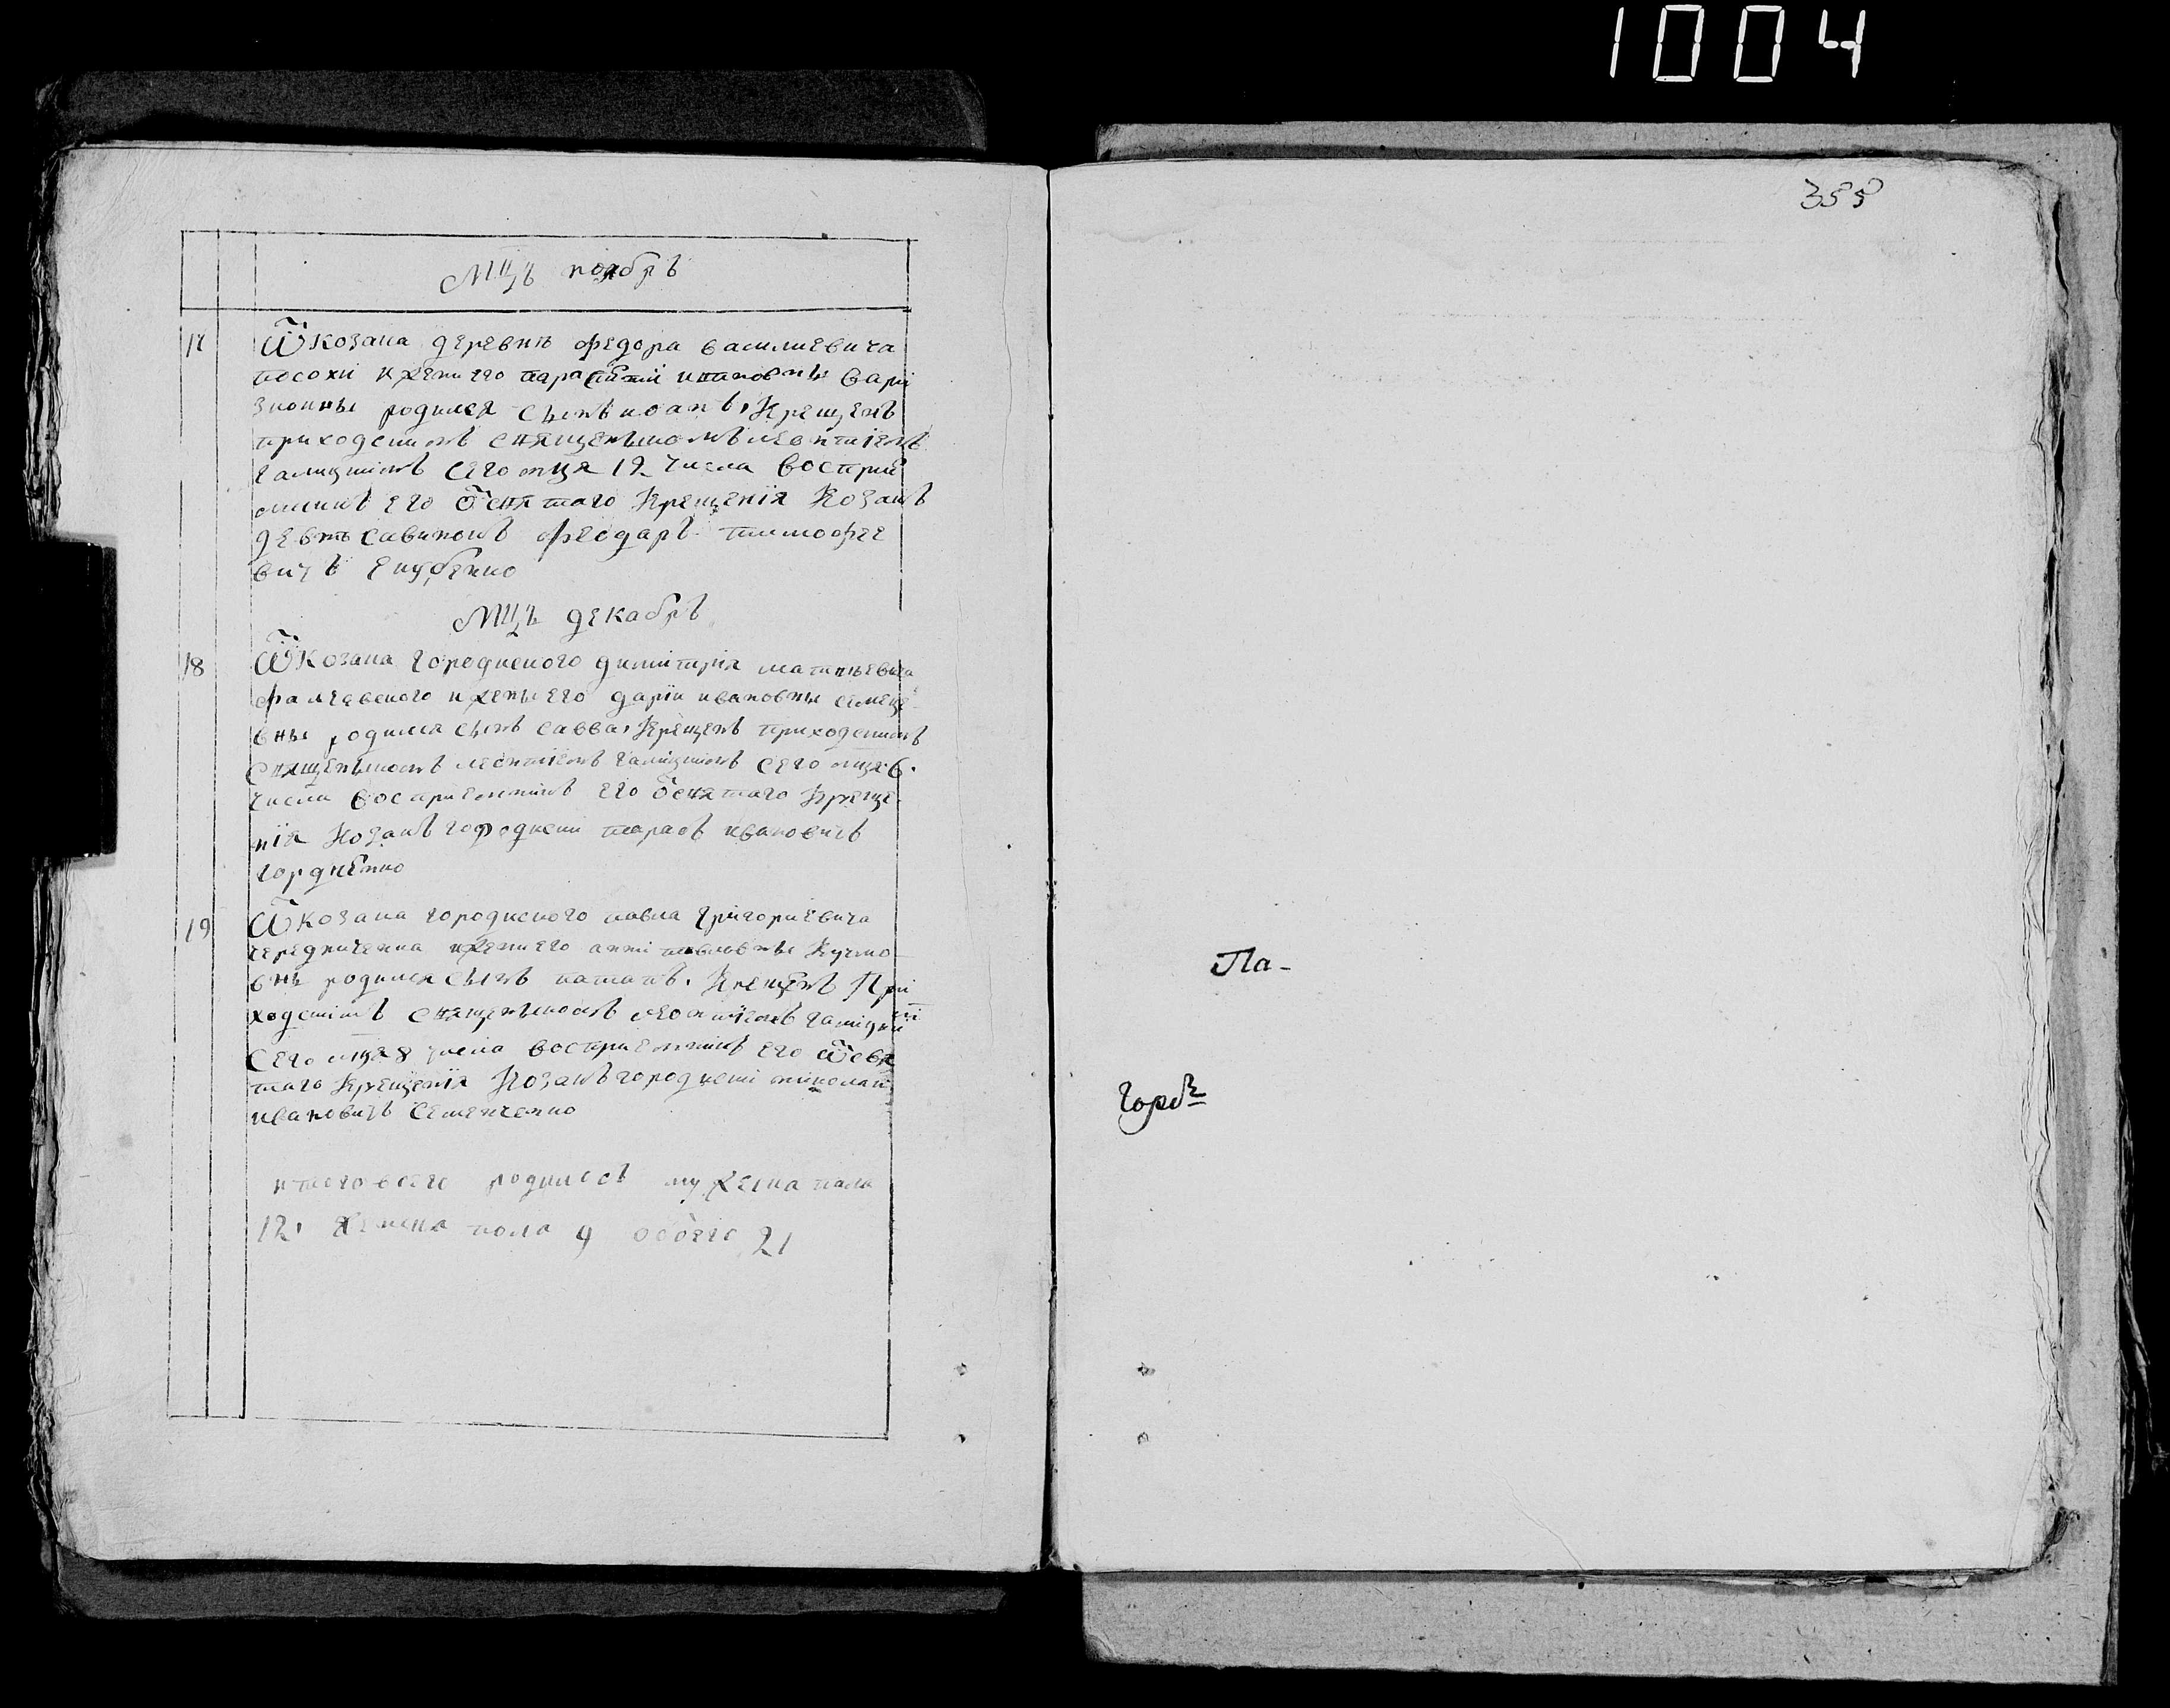 1004
355
Мцъ ноябрь
17 Ѿ козака деревнѣ федора василиевича
носохи и жени его параскевіи
родился сынъ иоанъ, Крещенъ
приходскимъ священъникомъ леонтіемъ
галицкимъ сего мца 12 числа восприе
мникъ его ѿ святаго Крещенія Козакъ
федоръ тимофее
вичъ
Мцъ декабрь
18 Ѿ Козака городиского димитрія матвѣевича
и жены его даріи ивановны
родился сынъ савва, Крещенъ приходскимъ
священъникомъ леонтіемъ галицкимъ сего мца 6.
числа восприемникъ его ѿ святаго Креще
нія Козакъ городиски тарасъ ивановичъ
гордиенко
19 Ѿ козака городиского павла григориевича
чередниченка и жени его анни павловны
родился сынъ патапъ. Крещенъ При
ходскимъ священъникомъ леонтіемъ галицки
сего мця 8 числа восприемникъ его ѿ свя
таго Крещенія Козакъ городиски николаи
ивановичъ Семенченко
итого всего родилось мужеска пола
12. женска пола 9 обоего 21
Па-